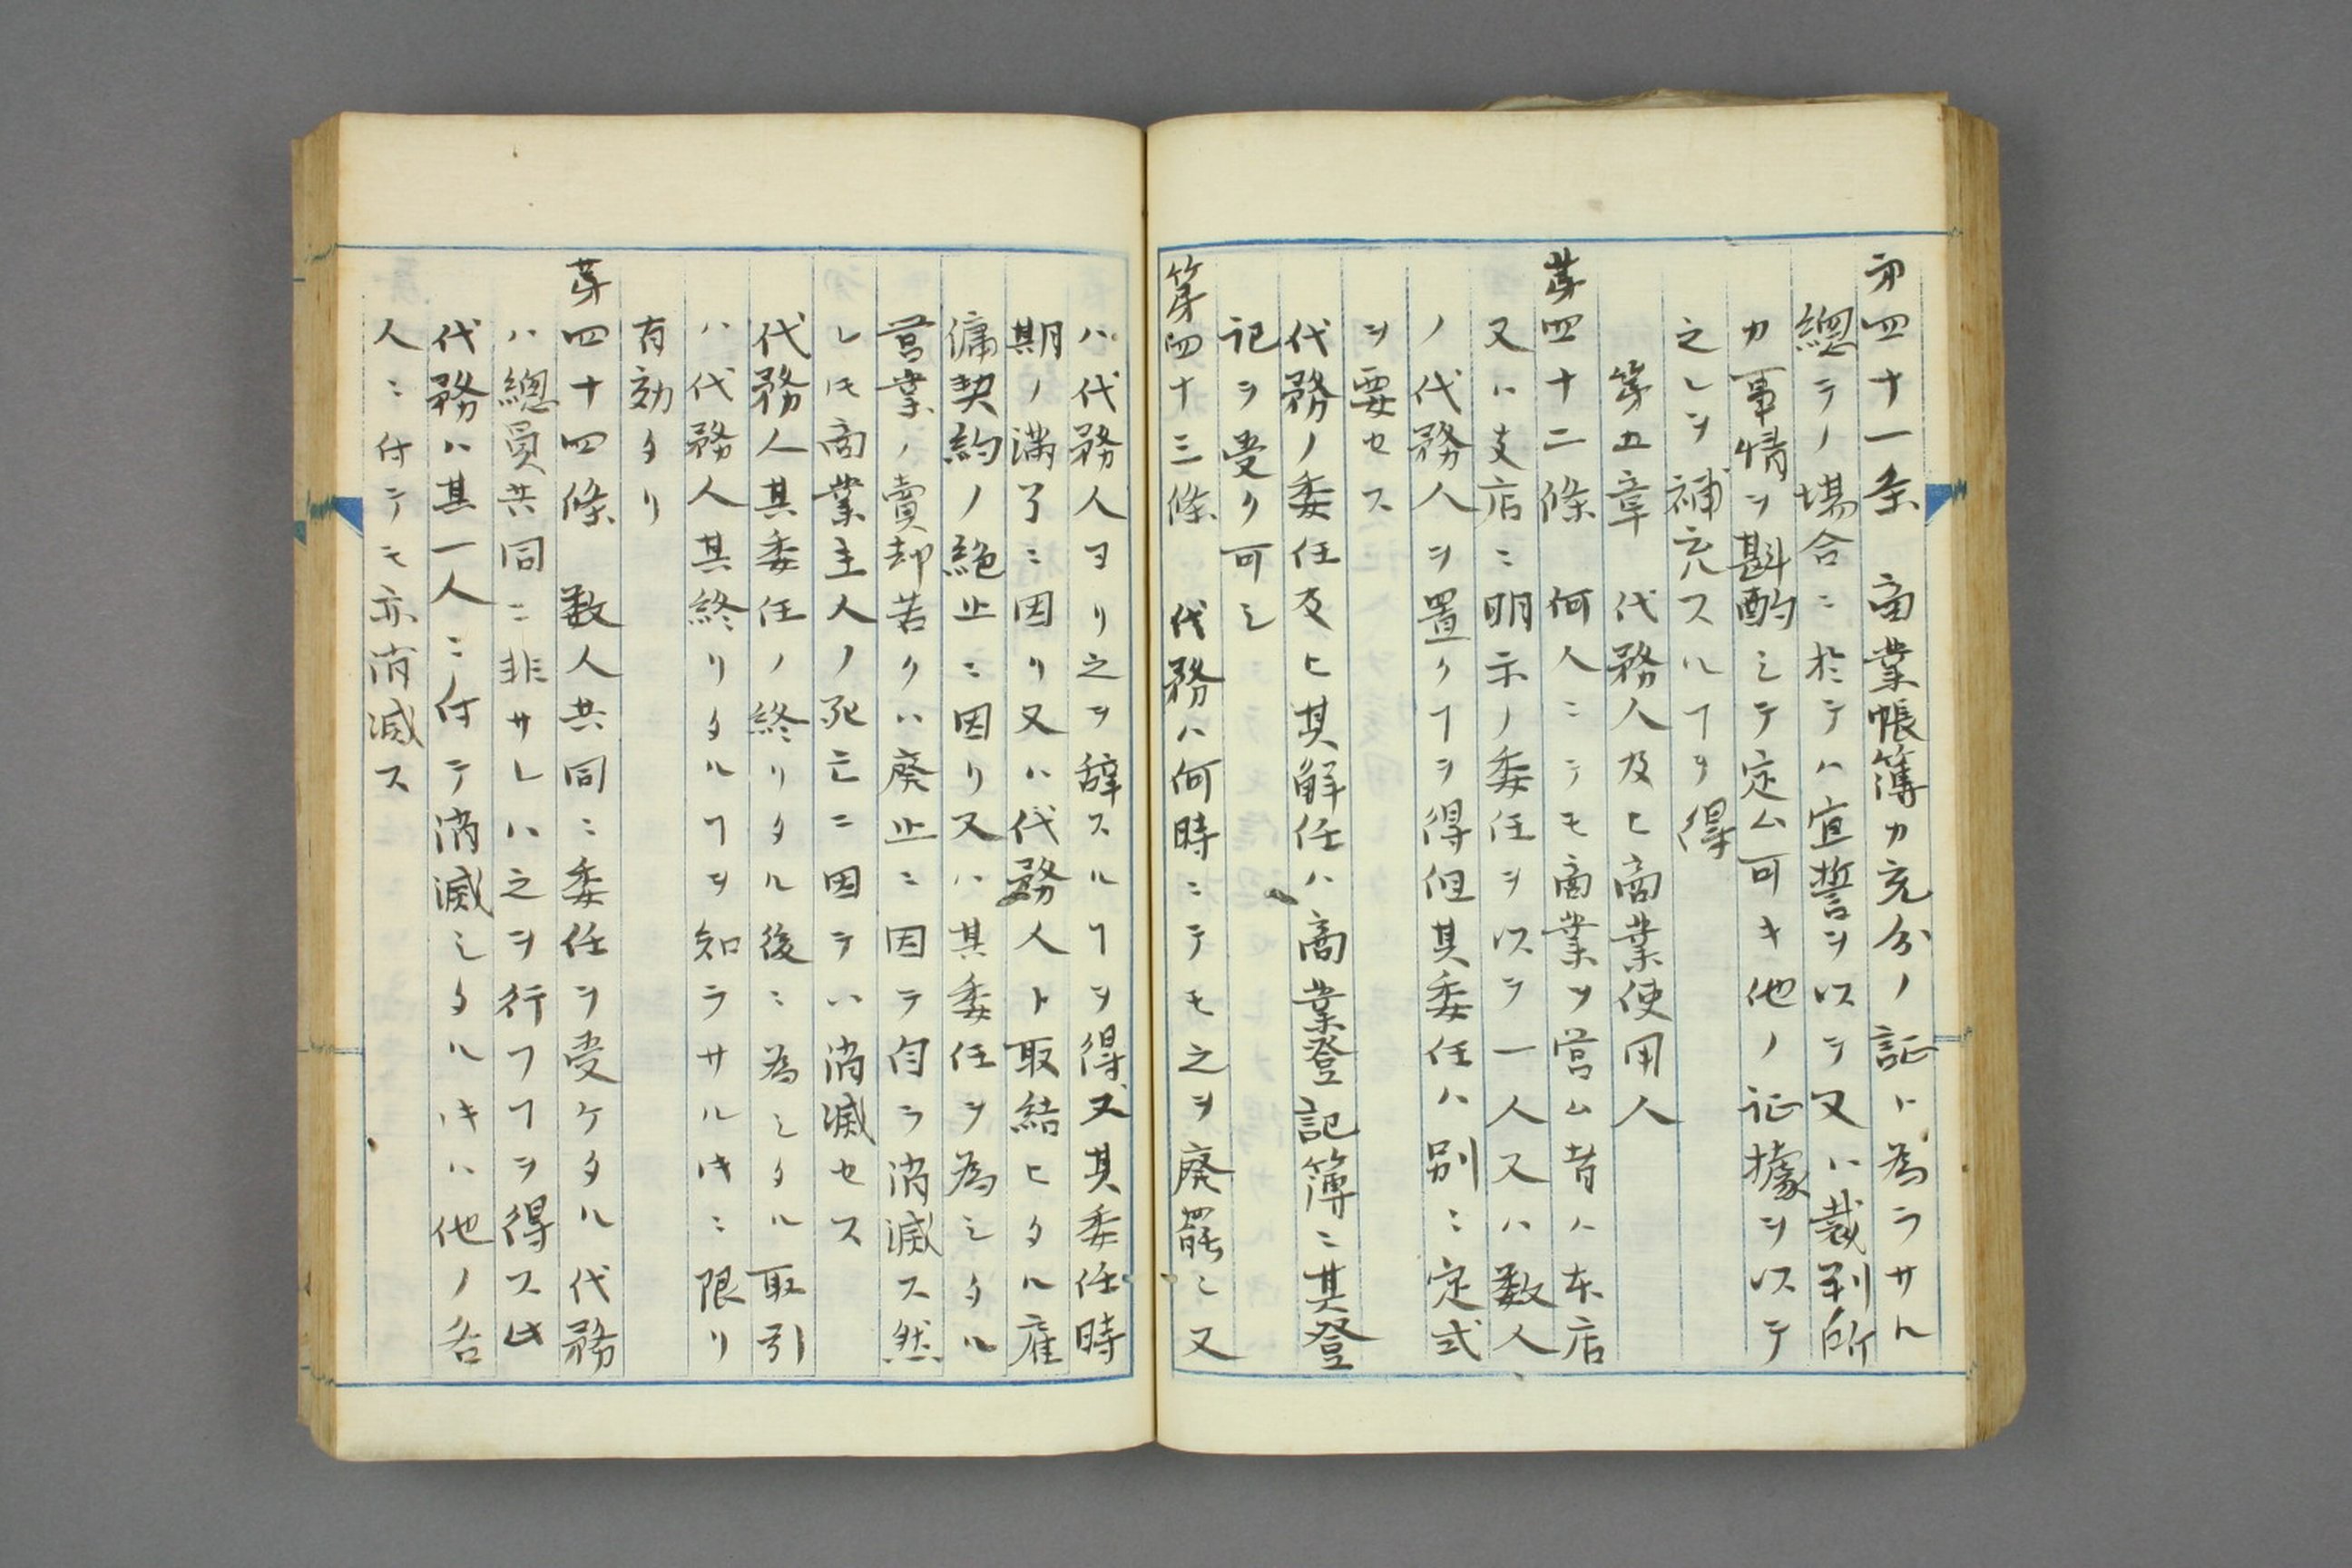 第四十一条　商業帳簿カ充分ノ証ト為ラサル
總テノ場合ニ於テハ宣誓ヲ以テ又ハ裁判所
カ事情ヲ斟酌シテ定ム可キ他ノ証據ヲ以テ
之レヲ補充スルヿヲ得
第五章　代務人及ヒ商業使用人
第四十二條　何人ニテモ商業ヲ営ム者ハ本店
又ハ支店ニ明示ノ委任ヲ以テ一人又ハ数人
ノ代務人ヲ置クヿヲ得但其委任ハ別ニ定式
ヲ要セス
代務ノ委任及ヒ其解任ハ商業登記簿ニ其登
記ヲ受ク可シ
第四十三條　代務ハ何時ニテモ之ヲ廃罷シ又
ハ代務人ヨリ之ヲ辞スルヿヲ得又其委任時
期ノ満了ニ因リ又ハ代務人ト取結ヒタル雇
傭契約ノ絶止ニ因リ又ハ其委任ヲ為シタル
営業ノ賣却若クハ廃止ニ因テ自ラ消滅ス然
レ𪜈商業主人ノ死亡ニ因テハ消滅セス
代務人其委任ノ終リタル後ニ為シタル取引
ハ代務人其終リタルヿヲ知ラサルキニ限リ
有効タリ
第四十四條　数人共同ニ委任ヲ受ケタル代務
ハ總員共同ニ非サレハ之ヲ行フヿヲ得ス此
代務ハ其一人ニ付テ消滅シタルキハ他ノ各
人ニ付テモ亦消滅ス